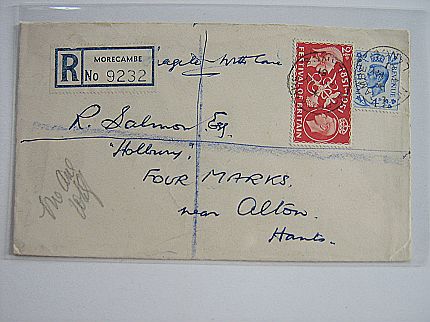 R
MORECAMBE
No 9232
Fragile - with Care
2½D
1851-1951
FESTIVAL OF BRITAIN
R. Salmon Esq.
"Holbury",
FOUR MARKS.
near Alton.
Hants.